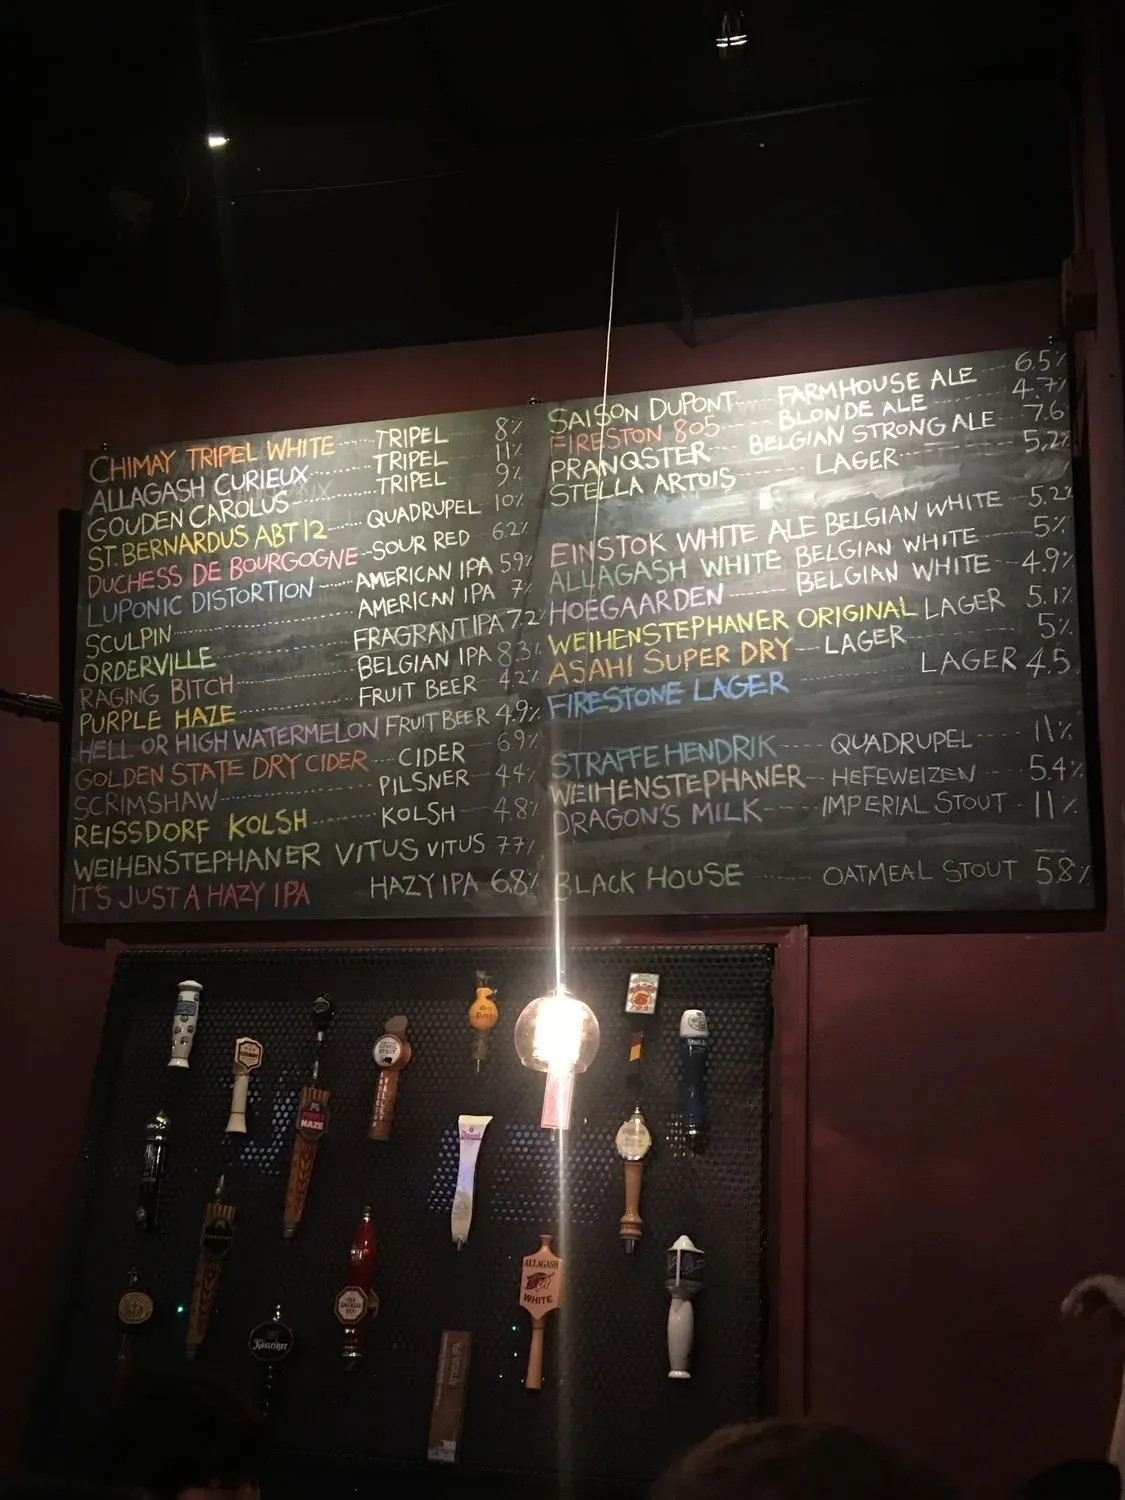 CHIMAY TRIPEL WHITE ---- TRIPEL 8%
ALLAGASH CURIEUX ---- TRIPEL 11%
GOUDEN CAROLUS ---- TRIPEL 9%
ST. BERNARDUS ABT 12 ---- QUADRUPEL 10%
DUCHESS DE BOURGOGNE -- SOUR RED 6.2%
LUPONIC DISTORTION ---- AMERICAN IPA 59%
SCULPIN ---- AMERICAN IPA 7%
ORDERVILLE ---- FRAGRANT IPA 7.2%
RAGING BITCH ---- BELGIAN IPA 8.3%
PURPLE HAZE ---- FRUIT BEER 4.2%
HELL OR HIGH WATERMELON FRUIT BEER 4.9%
GOLDEN STATE DRY CIDER --- CIDER 6.9%
SCRIMSHAW ---- PILSNER 4.4%
REISSDORF KOLSH ---- KOLSH 4.8%
WEIHENSTEPHANER VITUS VITUS 7.7%
IT'S JUST A HAZY IPA HAZY IPA 6.8%
SAISON DUPONT --- FARMHOUSE ALE --- 6.5%
FIRESTON 805 --- BLONDE ALE --- 4.7%
PRANQSTER --- BELGIAN STRONG ALE --- 7.6
STELLA ARTOIS --- LAGER --- 5.2%
EINSTOK WHITE ALE BELGIAN WHITE -- 5.2%
ALLAGASH WHITE BELGIAN WHITE --- 5%
HOEGAARDEN --- BELGIAN WHITE --- 4.9%
WEIHENSTEPHANER ORIGINAL LAGER 5.1%
ASAHI SUPER DRY -- LAGER --- 5%
FIRESTONE LAGER --- LAGER 4.5
STRAFFE HENDRIK --- QUADRUPEL --- 11%
WEIHENSTEPHANER -- HEFEWEIZEN --- 5.4%
DRAGON'S MILK --- IMPERIAL STOUT - 11%
BLACK HOUSE --- OATMEAL STOUT 5.8%
HAZE
ALLAGASH
WHITE
Köstritzer